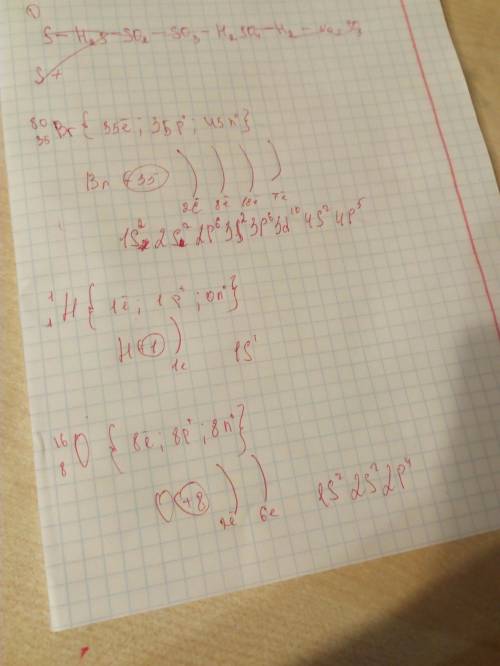 1
S - H₂S - SO₂ - SO₃ - H₂SO₄ - H₂ - Na₂SO₃
S +
⁸⁰₃₅Br { 35ē; 35p⁺; 45n° }
Br +35 ) ) ) )
2ē 8ē 18ē 7ē
1S² 2S² 2p⁶ 3S² 3p⁶ 3d¹⁰ 4S² 4p⁵
¹₁H { 1ē; 1p⁺; 0n° }
H +1 )
1e
1S¹
¹⁶₈O { 8ē; 8p⁺; 8n° }
O +8 ) )
2ē 6e
1S² 2S² 2p⁴